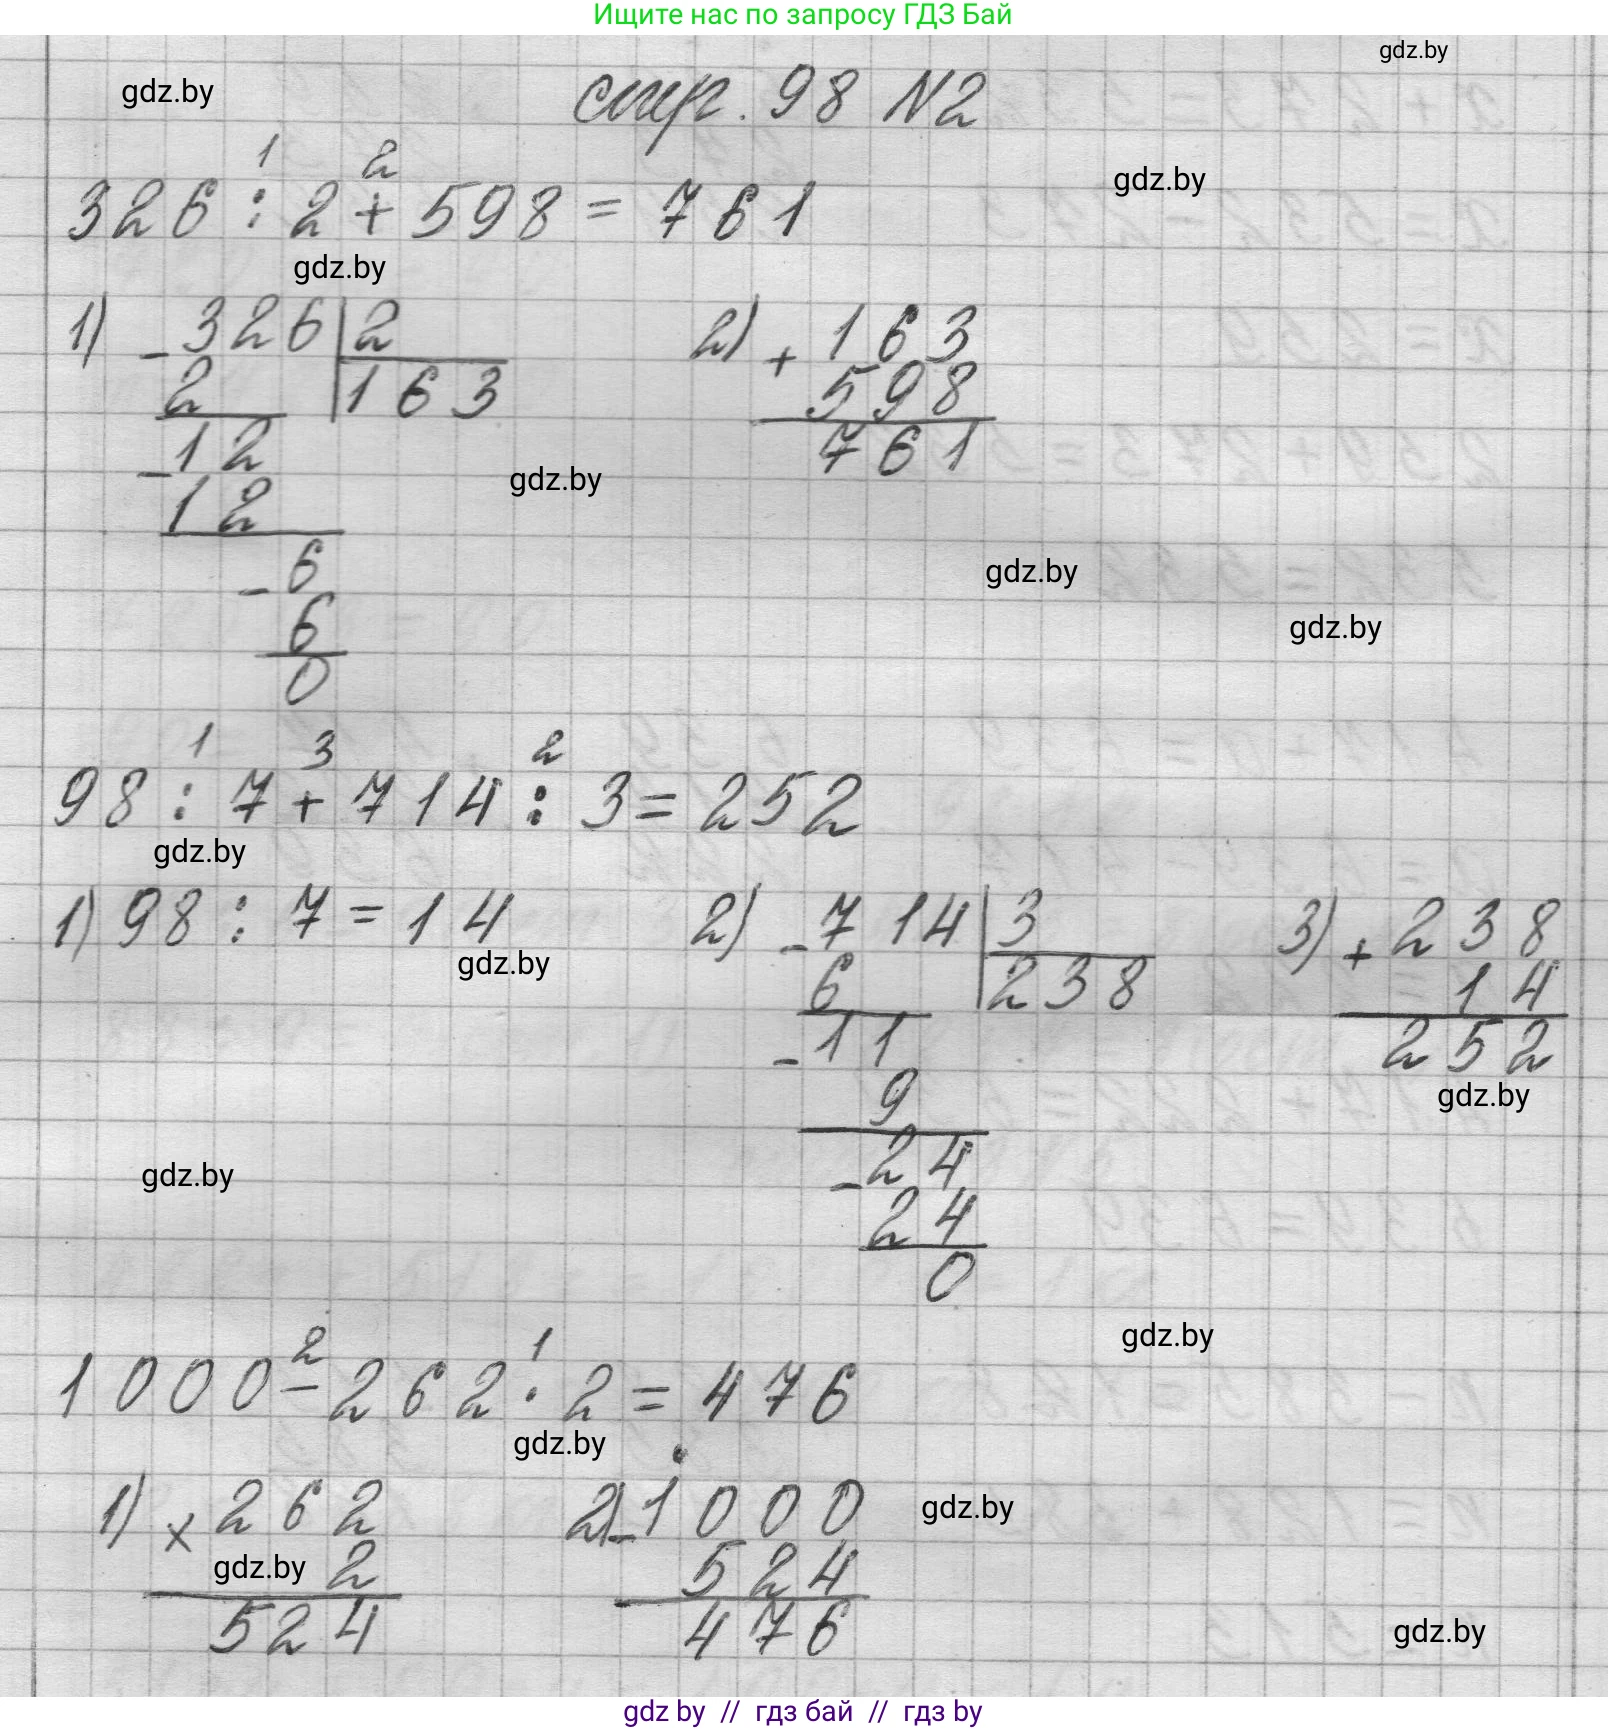 Ищите нас по запросу ГДЗ Бай
gdz.by
gdz.by
стр. 98 N2
gdz.by
1 2
326 : 2 + 598 = 761
gdz.by
1) - 326 | 2
2 163
- 12
12
- 6
6
0
2) + 163
598
761
gdz.by
gdz.by
gdz.by
1 3 2
98 : 7 + 714 : 3 = 252
gdz.by
1) 98 : 7 = 14
gdz.by
2) - 714 | 3
6 238
- 11
9
- 24
24
0
3) + 238
14
252
gdz.by
gdz.by
gdz.by
2 1
1000 - 262 · 2 = 476
gdz.by
1) × 262
gdz.by 2
524
2) - 1000
524
476
gdz.by
gdz.by
gdz by // гдз бай // гдз by